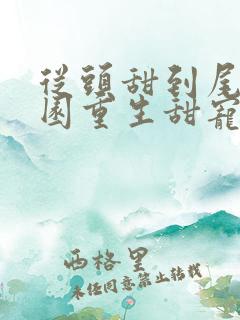 從頭甜到尾
園重生甜寵
西格里
未經同意禁止轉載